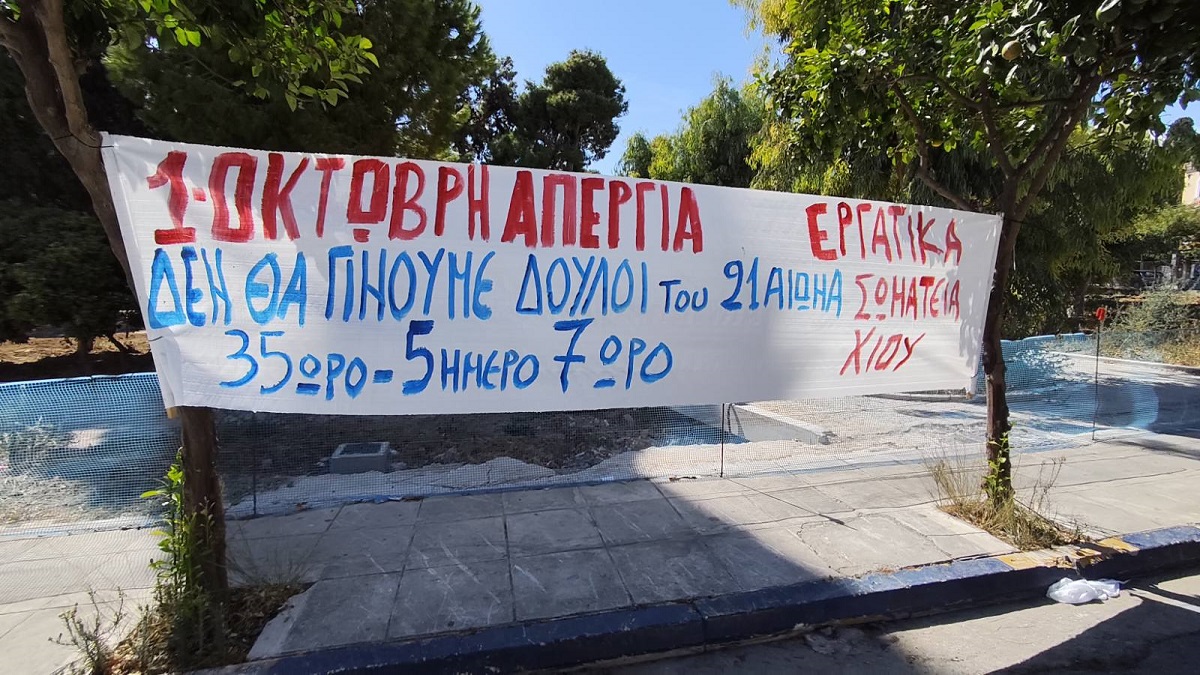 1-ΟΚΤΩΒΡΗ ΑΠΕΡΓΙΑ
ΔΕΝ ΘΑ ΓΙΝΟΥΜΕ ΔΟΥΛΟΙ ΤΟΥ 21 ΑΙΩΝΑ
35ΩΡΟ - 5ΗΜΕΡΟ 7ΩΡΟ
ΕΡΓΑΤΙΚΑ
ΣΩΜΑΤΕΙΑ
ΧΙΟΥ